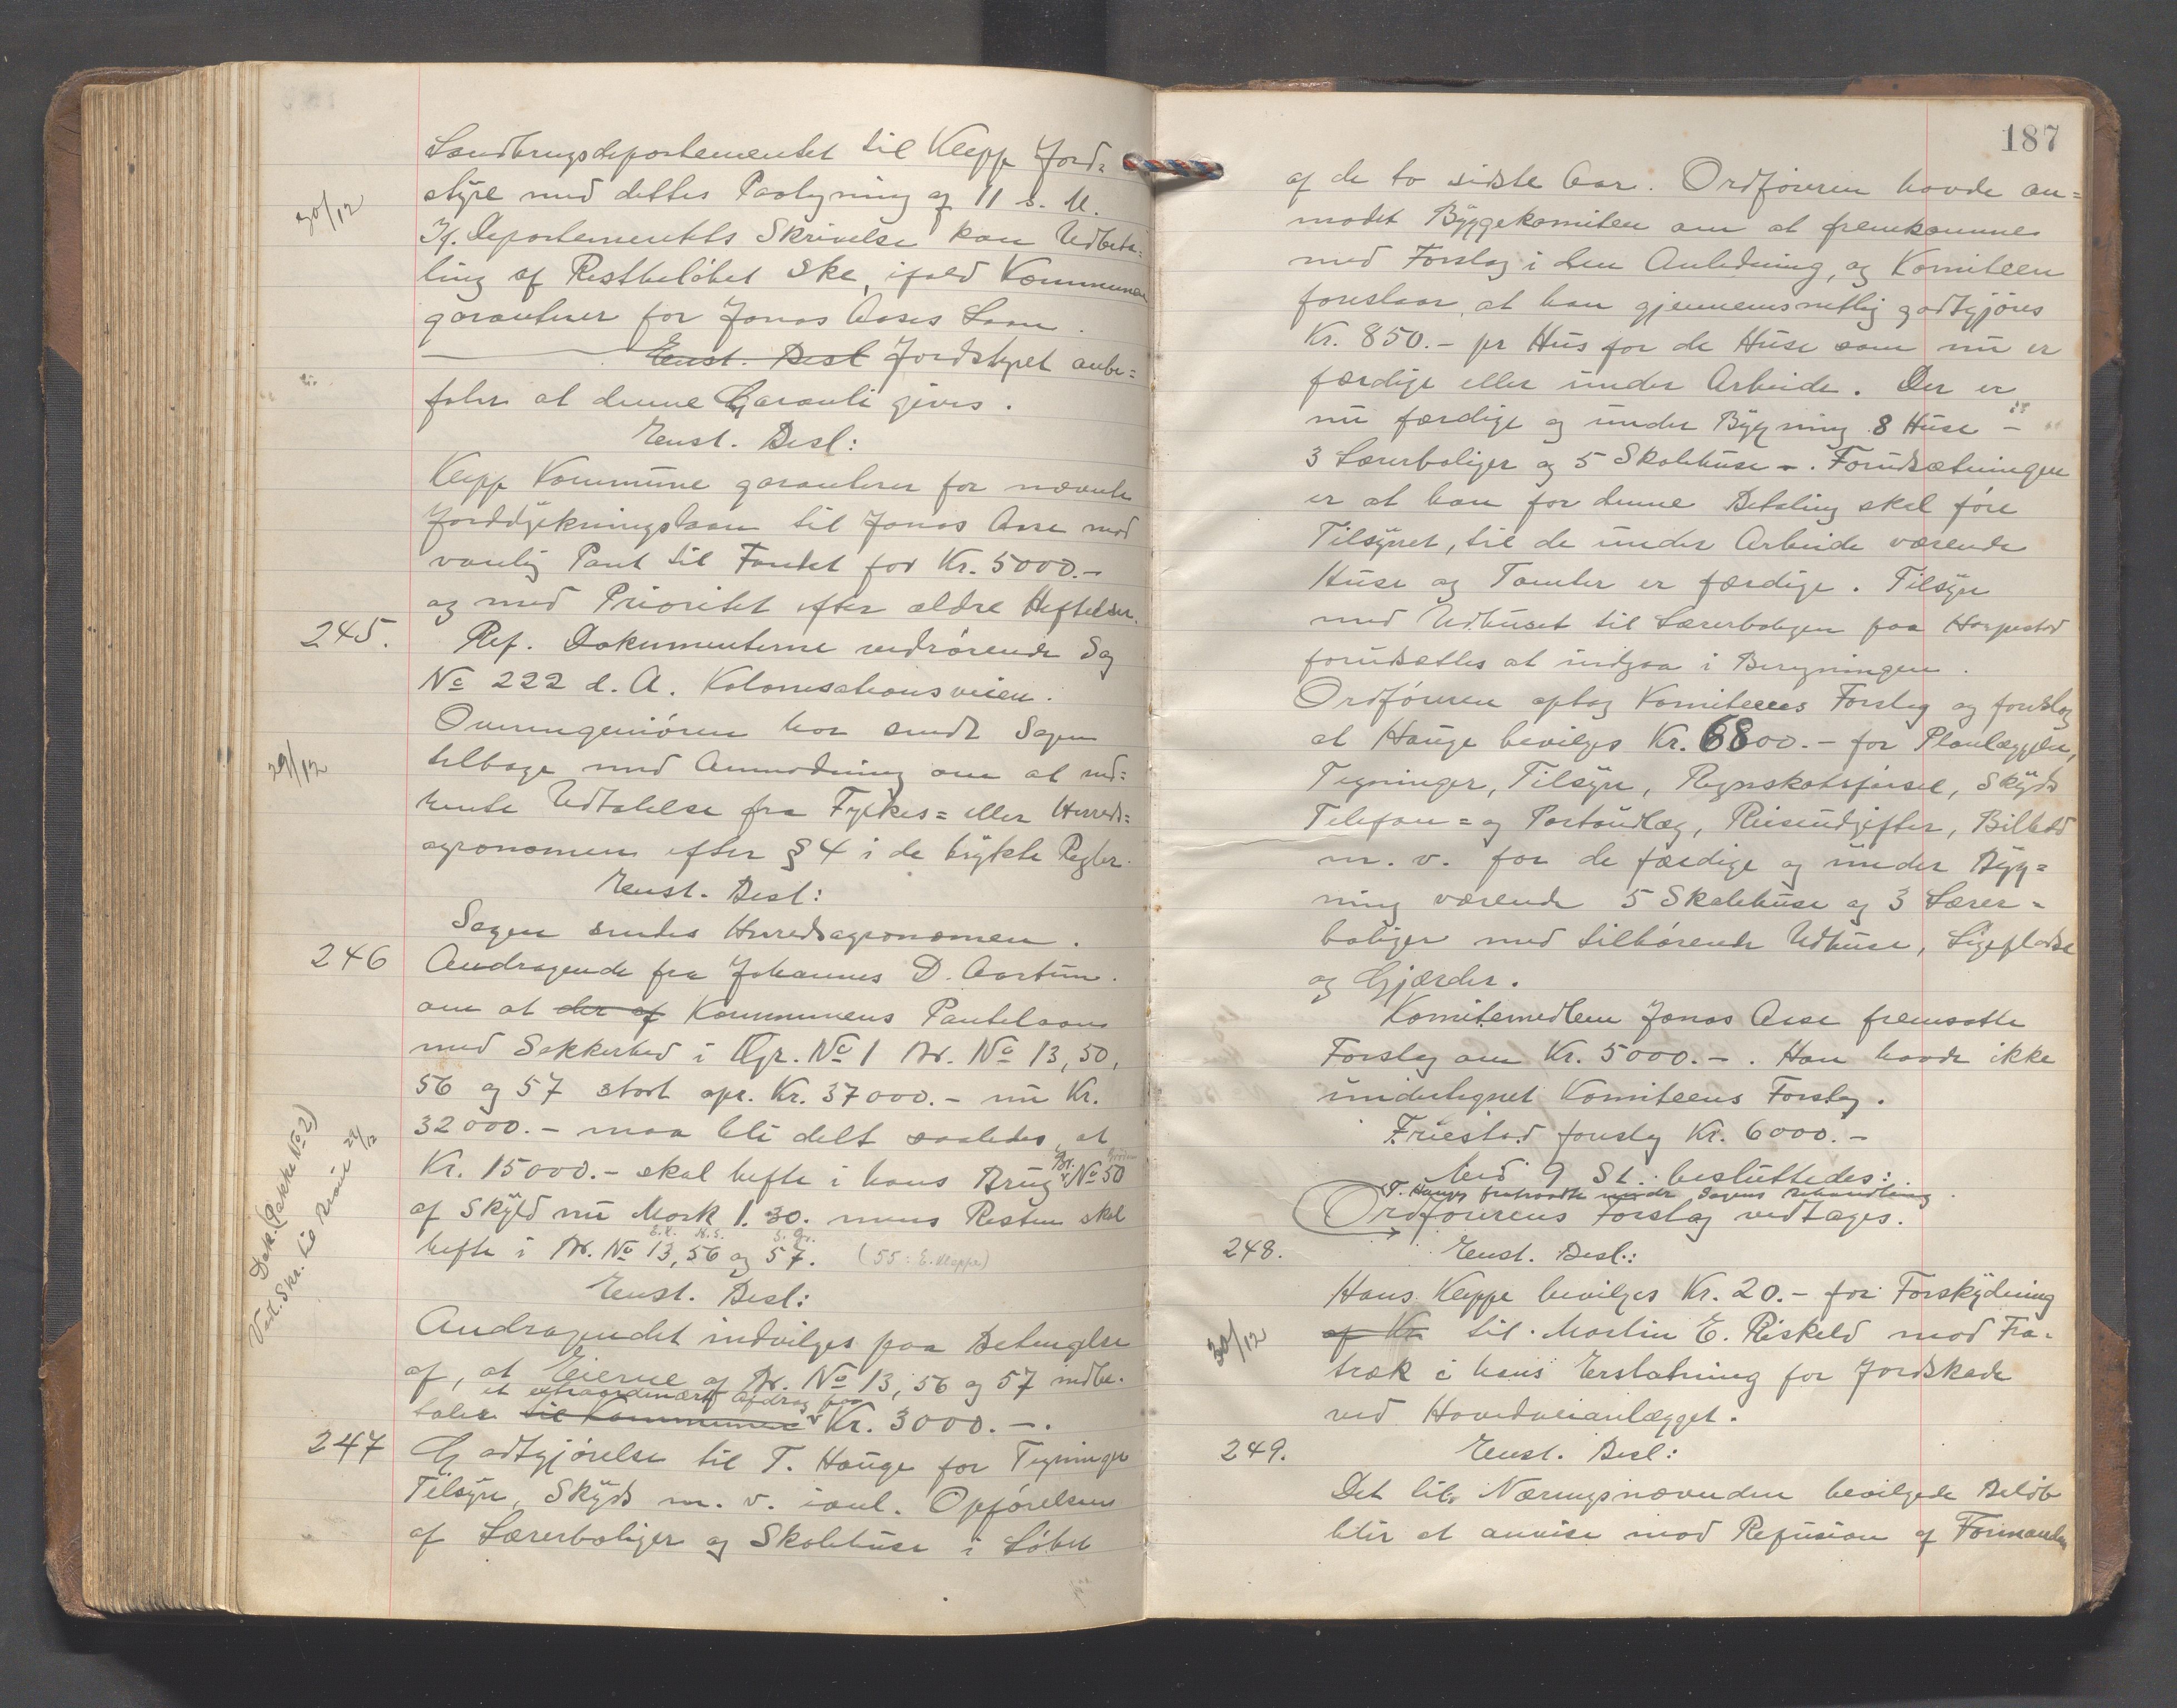 Landbrugsdepartementet til Klepp Jord-
styre med dettes Paategning af 11 d. M.
30/12
Jf. Departementets Skrivelse kan Udbeta-
ling af Restbeløbet ske, ifald Kommunen
garanterer for Jonas Aases Laan.
Enst. Besl Jordstyret anbe=
faler at denne Garanti gives.
Enst. Besl:
Klepp Kommune garanterer for nævnte
Jorddyrkningslaan til Jonas Aase mod
vanlig Pant til Fondet for Kr. 5000.-
og med Prioritet efter ældre Heftelser.
245. Ref. Dokumenterne vedrørende Sag
No 222 d. A. Kolonisationsveien.
Overingeniøren har sendt Sagen
29/12
tilbage med Anmodning om at ind=
hente Udtalelse fra Fylkes= eller Herreds=
agronomen efter § 4 i de trykte Regler.
Enst. Besl:
Sagen sendes Herredsagronomen.
246 Andragende fra Johannes D. Aartun.
om at der af Kommunens Pantelaan
med Sikkerhed i Gr. No 1 Br. No 13, 50,
56 og 57 stort opr. Kr. 37000.- nu Kr.
32000.- maa bli delt saaledes, at
Kr. 15000.- skal hefte i hans Brug Br. No 50
af Skyld nu Mark 1.30. mens Resten skal
hefte i Br. No 13, 56 og 57. (55: E. Kleppe)
Dok. (Pakke No 2)
Enst. Besl:
Andragendet indvilges paa Betingelse
af, at Eierne af Br. No 13, 56 og 57 indbe-
et extraordinært Afdrag paa
taler til Kommunen Kr. 3000.-.
247 Godtgjørelse til T. Hauge for Tegninger
Tilsyn, Skyds m. v. ianl. Opførelsen
af Lærerboliger og Skolehuse i Løbet
187
af de to sidste Aar. Ordføreren havde an=
modet Byggekomiteen om at fremkomme
med Forslag i den Anledning, og Komiteen
foreslaar, at han gjennemsnitlig godtgjøres
Kr. 850.- pr Hus for de Huse som nu er
færdige eller under Arbeide. Der er
nu færdige og under Bygning 8 Huse -
3 Lærerboliger og 5 Skolehuse -. Forudsætningen
er at han for denne Betaling skal føre
Tilsynet, til de under Arbeide værende
Huse og Tomter er færdige. Tilsyn
med Udhuset til Lærerboligen paa Horpestad
forudsættes at indgaa i Beregningen.
Ordføreren optog Komiteens Forslag og foreslog
at Hauge bevilges Kr. 6800.- for Planlæggelse,
Tegninger, Tilsyn, Regnskabsførsel, Skyds
Telefon= og Portoudlæg, Reiseudgifter, Billed
m. v. for de færdige og under Byg=
ning værende 5 Skolehuse og 3 Lærer=
boliger med tilhørende Udhuse, Ligeplads
og Gjærder.
Komitemedlem Jonas Aase fremsatte
Forslag om Kr. 5000.-. Han havde ikke
undertegnet Komiteens Forslag.
Friestad foreslog Kr. 6000.-
Med 9 St. besluttedes:
T. Hauge fratraadte under Sagens Behandling.
Ordførerens Forslag vedtages.
248. Enst. Besl.:
Hans Kleppe bevilges Kr. 20.- for Forskydning
30/12
af Kr. til Martin E. Riskeld mod Fra-
træk i hans Erstatning for Jordskade
ved Hovedveianlægget.
249. Enst. Besl:
Det til Næringsnævnden bevilgede Beløb
blir at anvise mod Refusion af Formanden